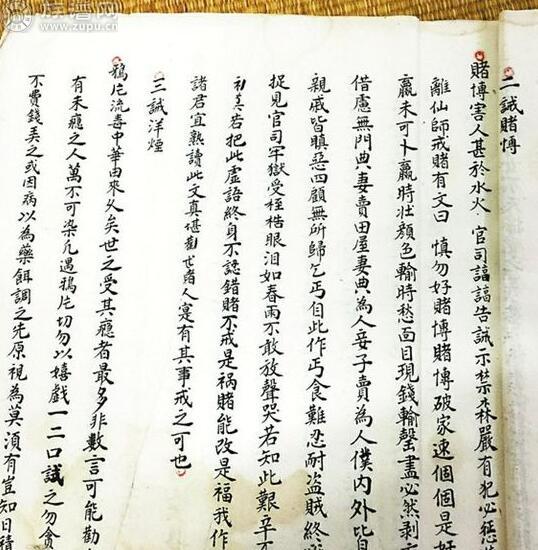 族谱网
www.zupu.cn
二誡賭博
賭博害人甚於水火官司諄諄告誡示禁森嚴有犯必懲
離仙師戒賭有文曰 慎勿好賭博賭博破家速個個是好
贏未可卜贏時壯顏色輸時愁面目現錢輸罄盡必然剥
借慮無門典妻賣田屋妻典為人妾子賣為人僕內外皆
親戚皆嗔惡四顧無所歸乞丐自此作丐食難忍耐盗賊終
捉見官司牢獄受桎梏眼泪如春雨不敢放聲哭若知此艱辛
若把此虛語終身不認錯賭不戒是祸賭能改是福我作
諸君宜熟讀此文真堪勸世諸人寔有其事戒之可也
三誡洋煙
鴉片流毒中華由來久矣世之受其癮者最多非數言可能勸
有未癮之人萬不可染凡遇鴉片切勿以嬉戲一二口試之勿貪
不費錢美之或因病以為藥餌調之先原視為莫須有豈知日積